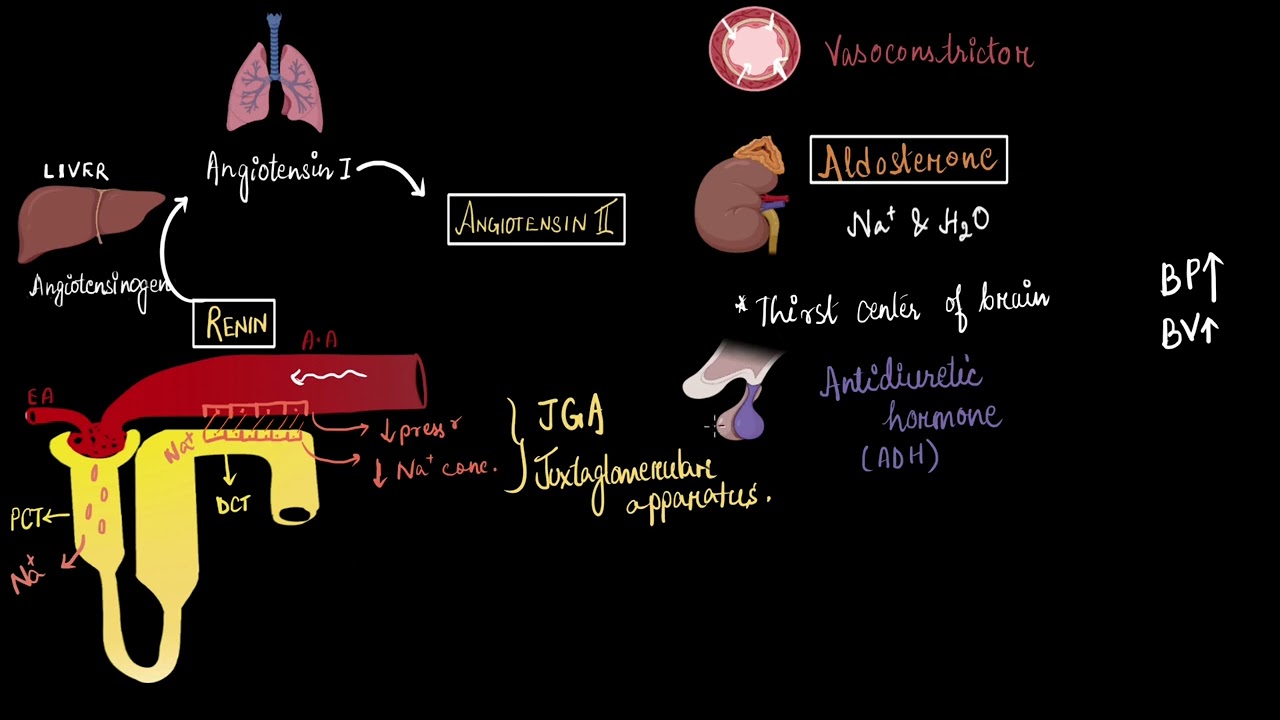 LIVER
Angiotensin I
Angiotensinogen
ANGIOTENSIN II
RENIN
A.A
EA
Na⁺
↓ press r
↓ Na⁺ conc.
DCT
PCT
Na⁺
JGA
Juxtaglomerulare
apparatus.
Vasoconstrictor
Aldosterone
Na⁺ & H₂O
* Thirst center of brain
Antidiuretic
hormone
(ADH)
BP↑
BV↑